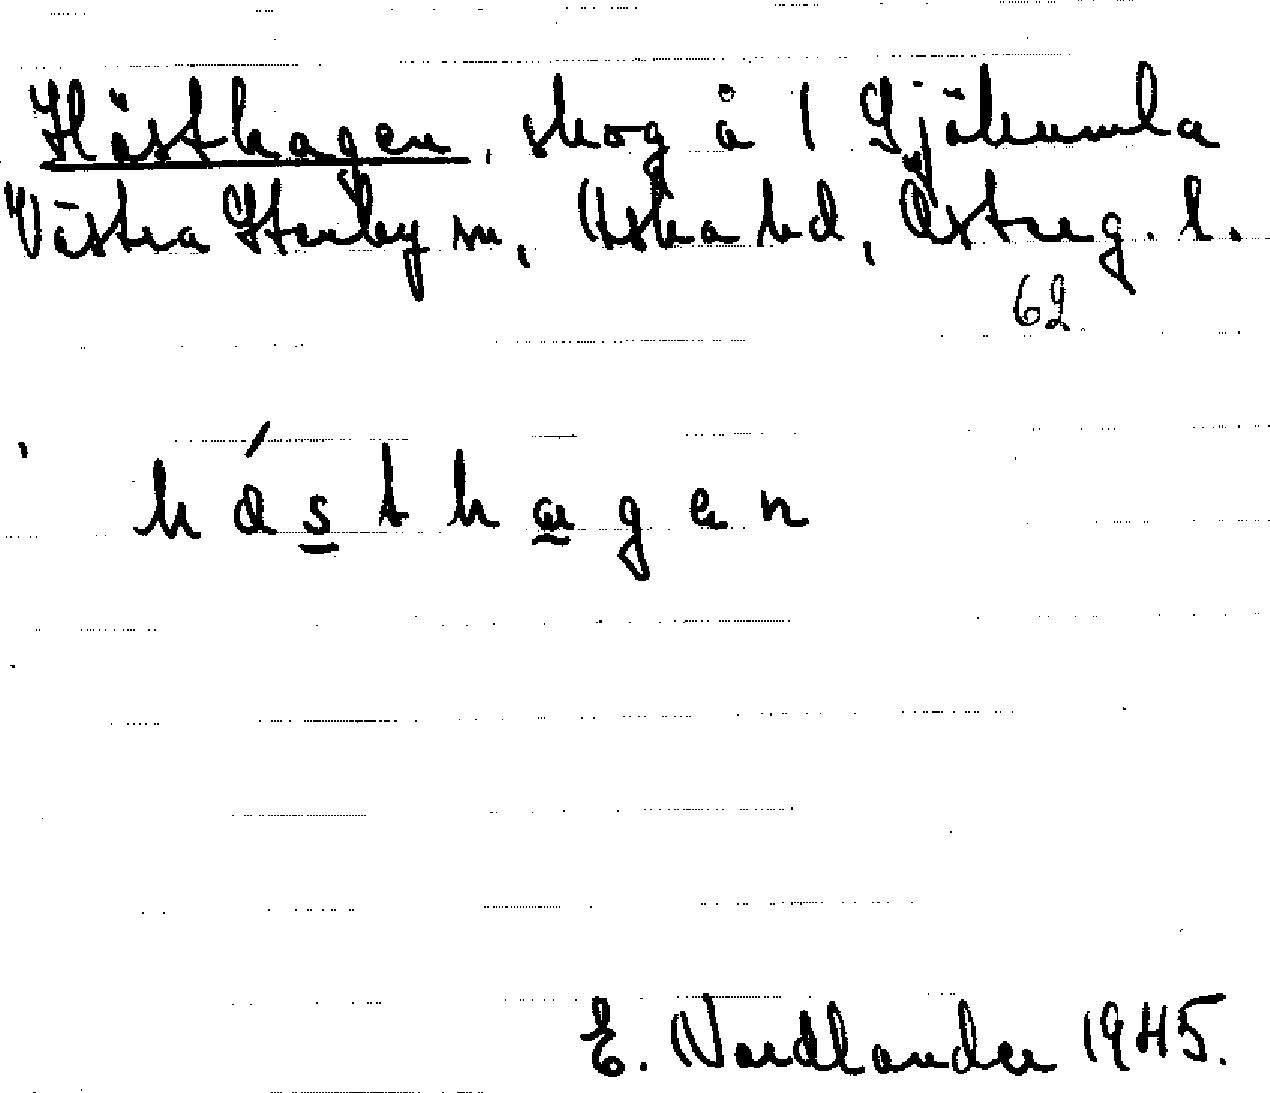 Hästhagen, skog å 1 Sjökumla
Västra Stenby sn, Aska hd, Östreg. l.
62.
hásthagen
E. Nordlander 1945.